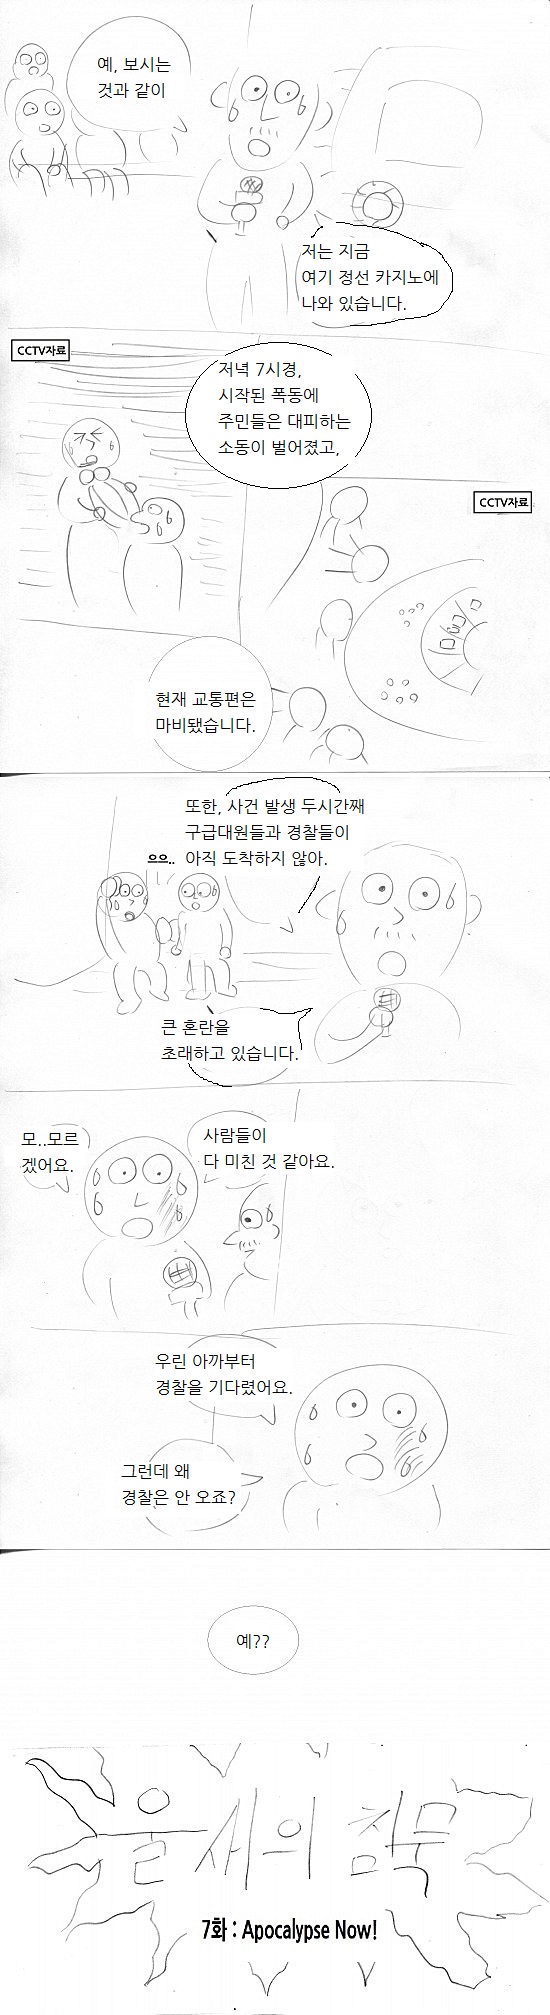 예, 보시는
것과 같이
저는 지금
여기 정선 카지노에
나와 있습니다.
CCTV자료
저녁 7시경,
시작된 폭동에
주민들은 대피하는
소동이 벌어졌고,
CCTV자료
현재 교통편은
마비됐습니다.
또한, 사건 발생 두시간째
구급대원들과 경찰들이
아직 도착하지 않아.
으으..
큰 혼란을
초래하고 있습니다.
모..모르
겠어요.
사람들이
다 미친 것 같아요.
우린 아까부터
경찰을 기다렸어요.
그런데 왜
경찰은 안 오죠?
예??
울새의 침묵
7화 : Apocalypse Now!